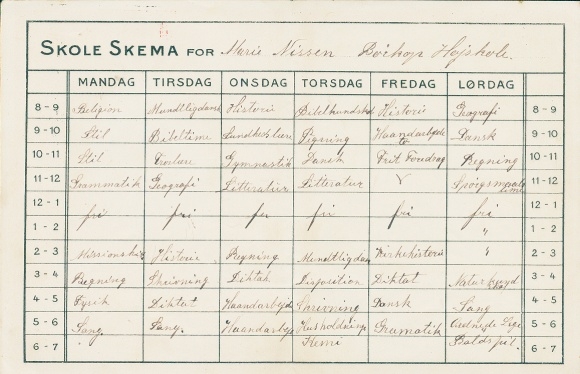 SKOLE SKEMA FOR Marie Nissen Højskole.
MANDAG TIRSDAG ONSDAG TORSDAG FREDAG LØRDAG
8-9 Religion Mundtligdansk Historie Bibelkundskab Historie Geografi 8-9
9-10 Stil Bibeltime Sundhedslære Regning Haandarbejde Dansk 9-10
10-11 Stil Gymnastik Dansk Frit Foredrag Regning 10-11
11-12 Grammatik Geografi Litteratur Litteratur 11-12
12-1 fri fri fri fri fri fri 12-1
1-2 " 1-2
2-3 Historie Regning Mundtligdan Kirkehistorie " 2-3
3-4 Regning Skrivning Diktat Disposition Diktat 3-4
4-5 Fysik Diktat Haandarbejd Skrivning Dansk Sang 4-5
5-6 Sang Sang. Haandarbej Husholdnings Gramatik 5-6
6-7 Kemi Boldspil. 6-7